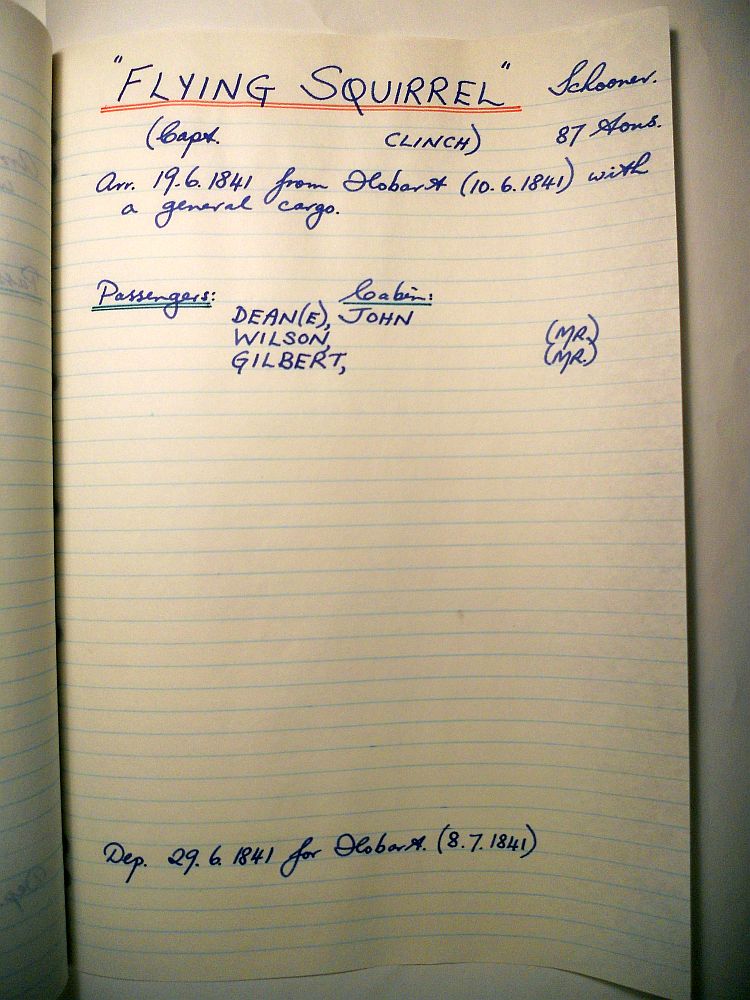 "FLYING SQUIRREL" Schooner.
(Capt. CLINCH) 87 tons.
Arr. 19.6.1841 from Hobart (10.6.1841) with
a general cargo.
Passengers: Cabin:
DEAN(E), JOHN
WILSON, (MR.)
GILBERT, (MR.)
Dep. 29.6.1841 for Hobart. (8.7.1841)